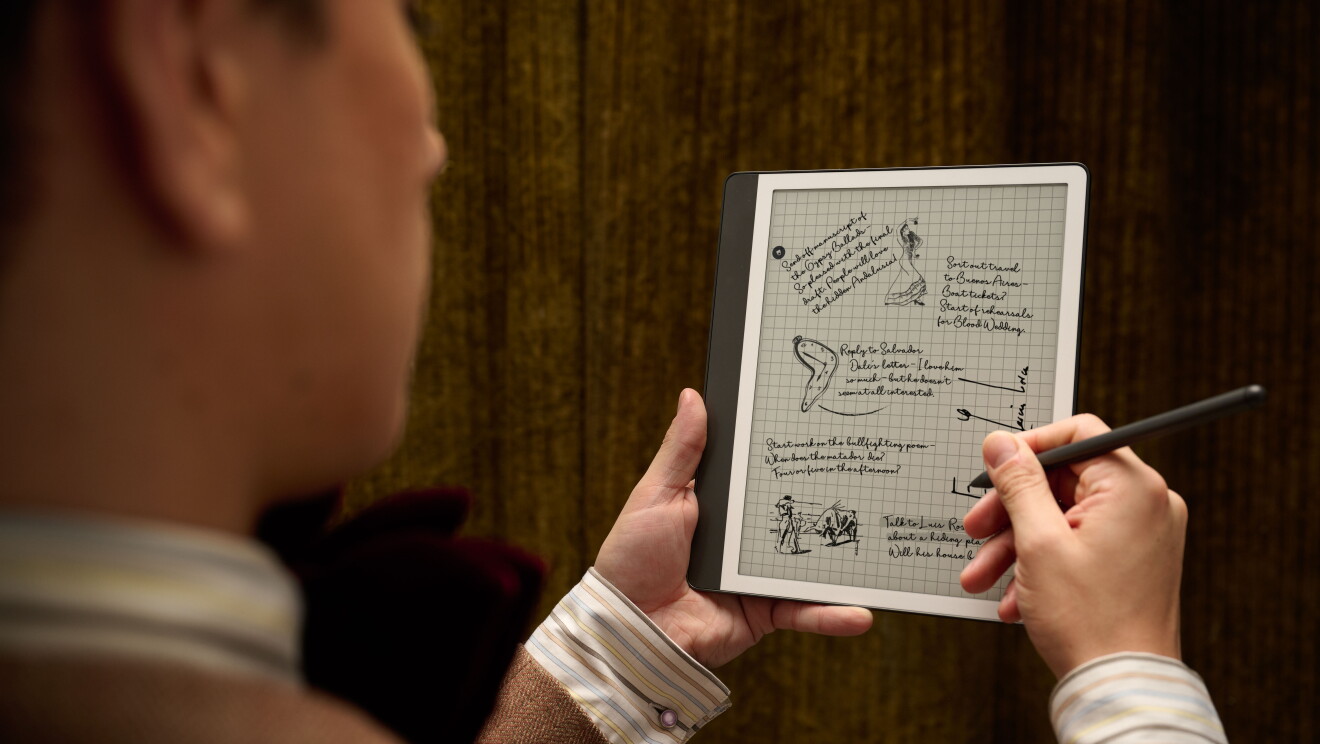 Send off manuscript of
the Gypsy Ballads -
So pleased with the final
draft. People will love
the hidden Andalusia!
Sort out travel
to Buenos Aires -
Boat tickets?
Start of rehearsals
for Blood Wedding.
Reply to Salvador
Dalí's letter - I love him
so much - but he doesn't
seem at all interested.
Start work on the bullfighting poem -
When does the matador die?
Four or five in the afternoon?
Talk to Luis
about a hiding
Will his house
Lorca